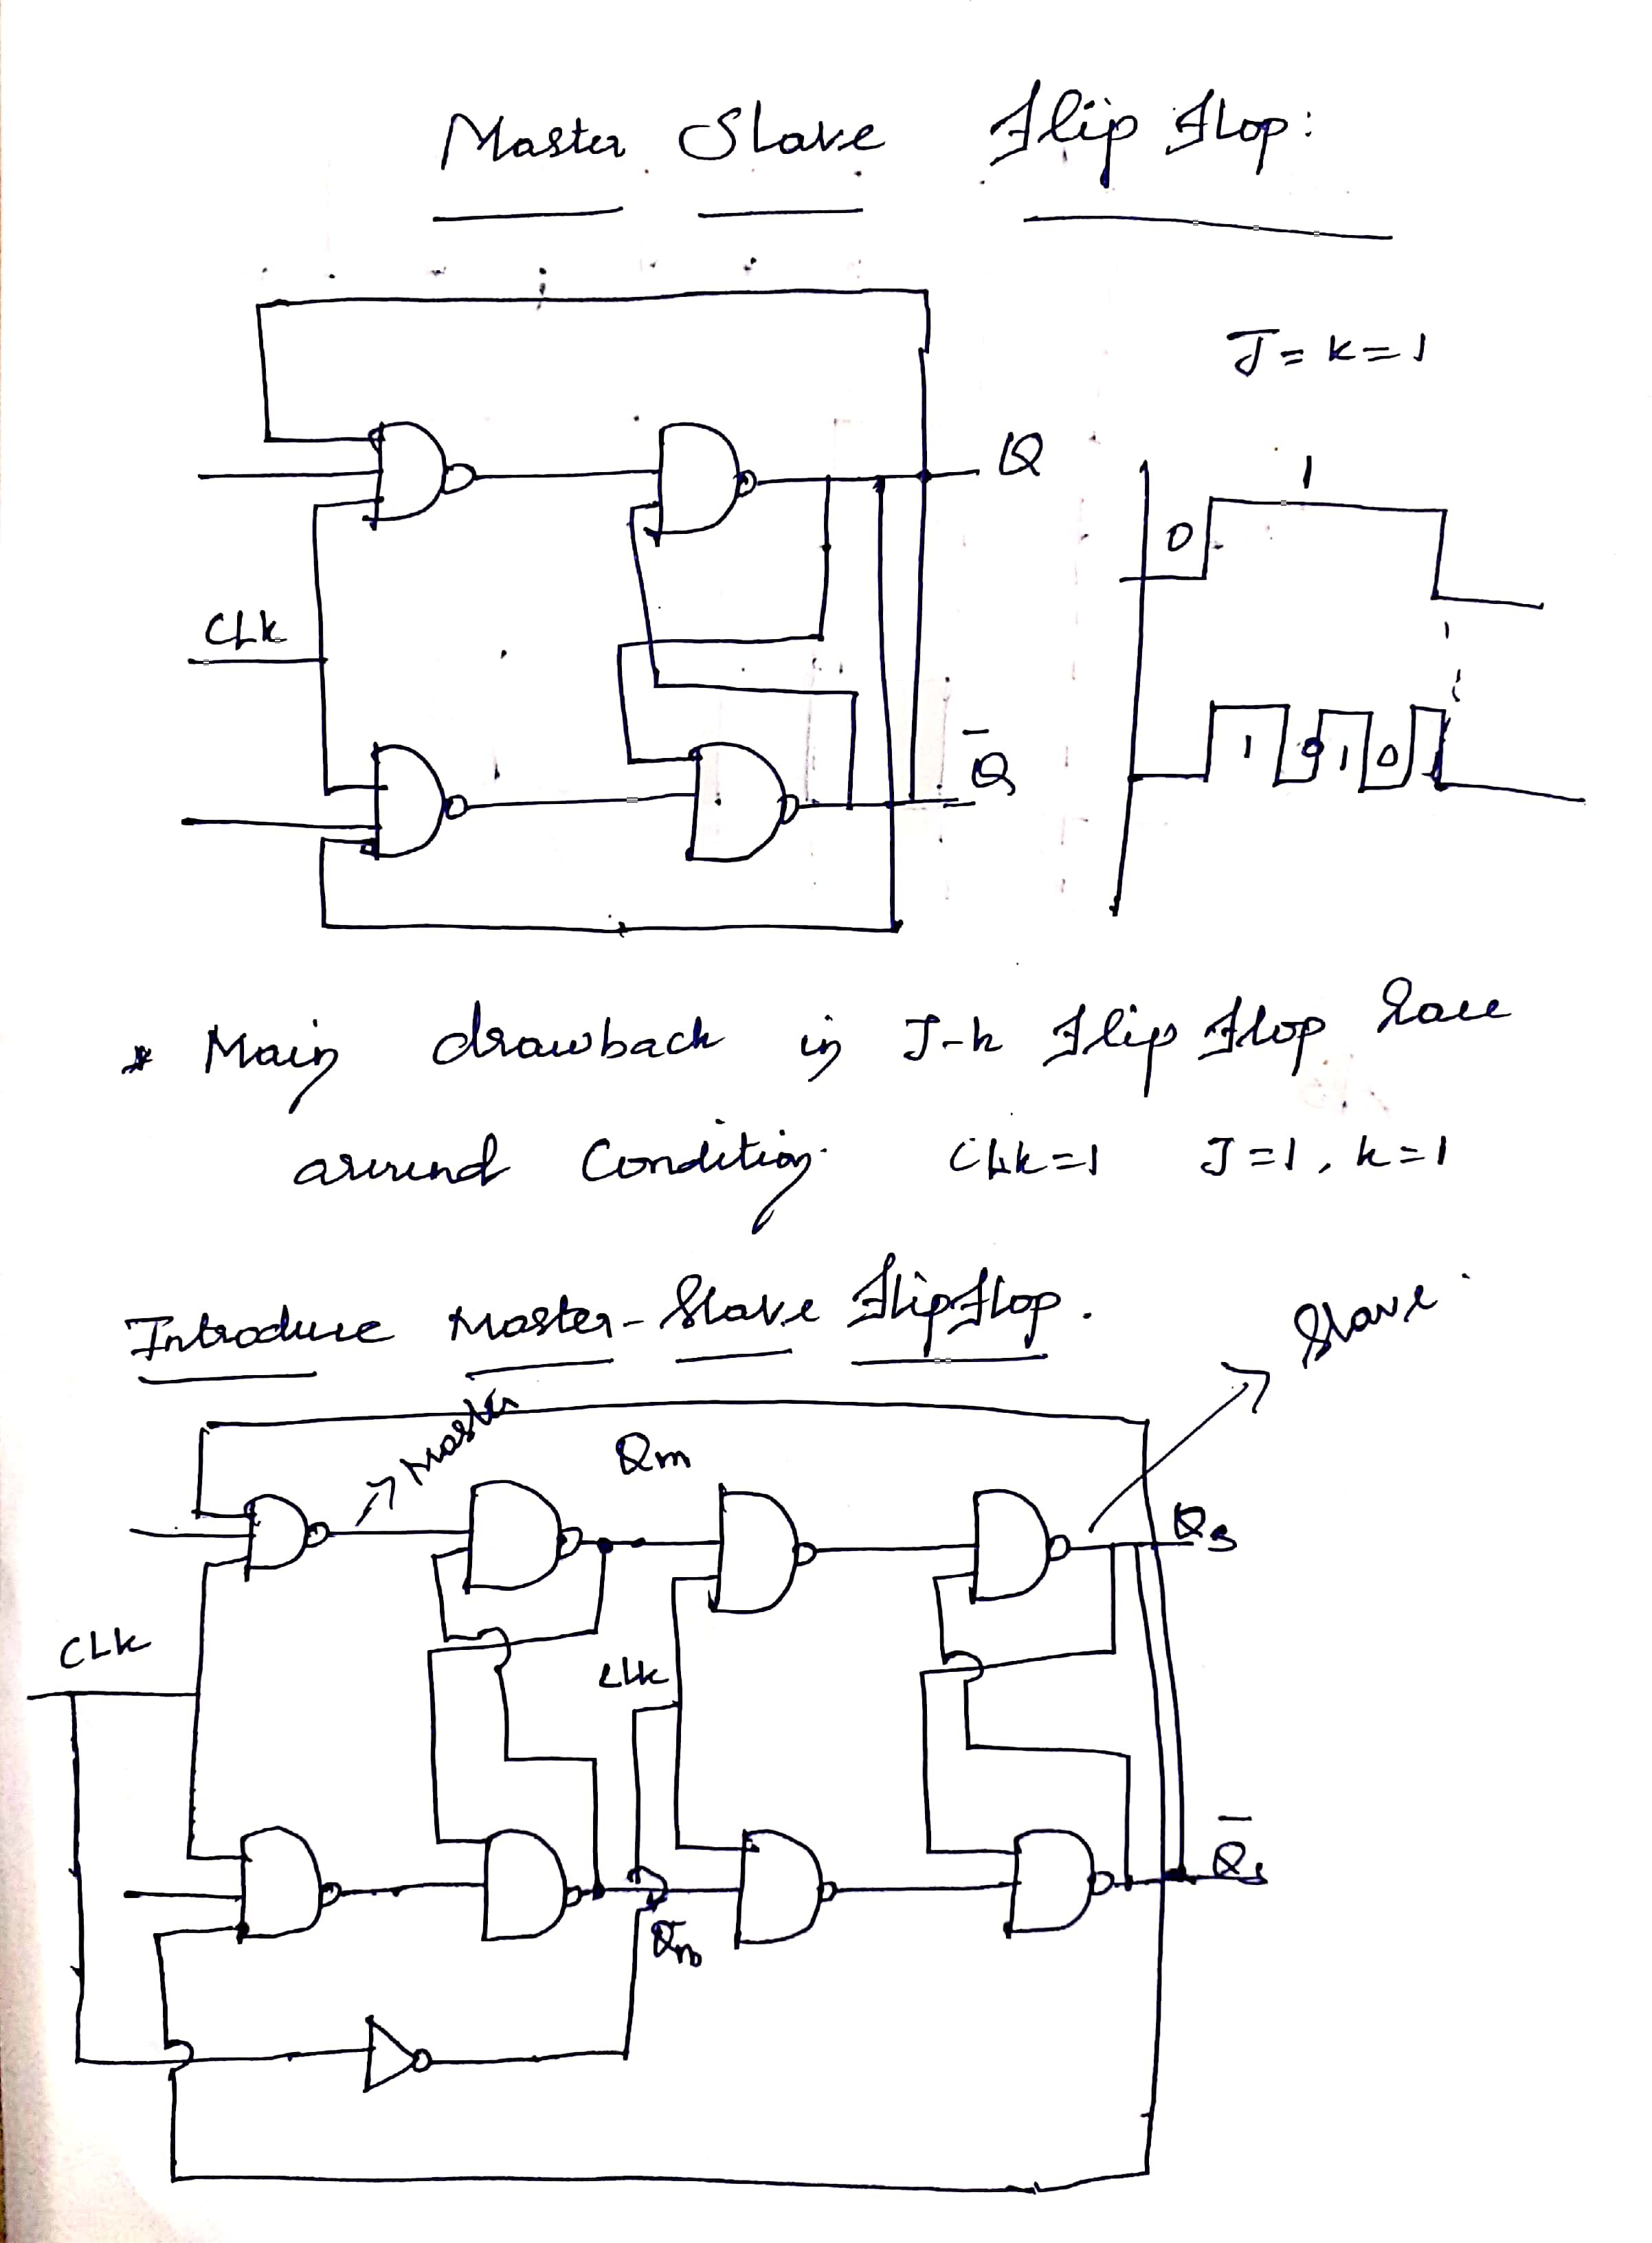 Master Slave Flip Flop:
J = K = 1
Q
1
0
CLK
1 0 1 0
Q̅
* Main drawback in J-k Flip Flop Race
around Condition. CLK=1 J=1, k=1
Introduce Master-Slave FlipFlop.
Slave
Master
Qm
Qs
CLK
CLK
Q̅s
Q̅m